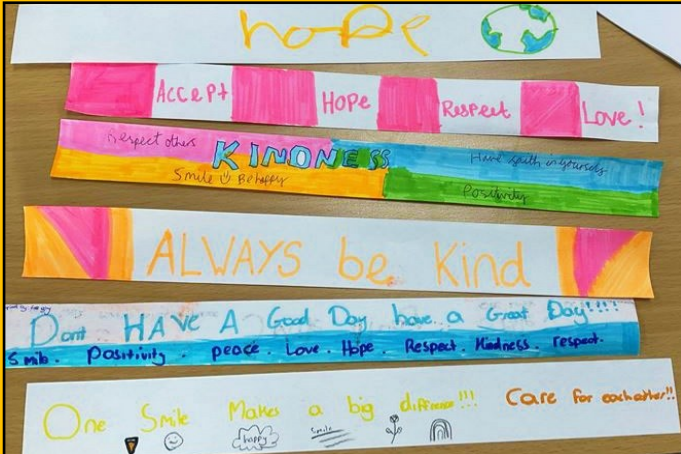 hope
Accept Hope Respect Love!
Respect others Have faith in yourself
KINDNESS
Smile Be happy Positivity
ALWAYS be Kind
Dont HAVE A Good Day have a Great Day!!!!
Smile. Positivity. peace. Love. Hope. Respect. Kindness. respect.
One Smile Makes a big difference!!! Care for eachother!!
happy Smile